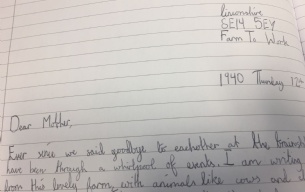 SE14 5EY
Farm To Work
1940 Thursday 12th
Dear Mother,
Ever since we said goodbye to eachother at the
have been through a whirlpool of events. I am writing
from this lovely farm, with animals like cows and